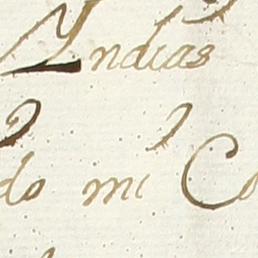 Yndias
do mi Co